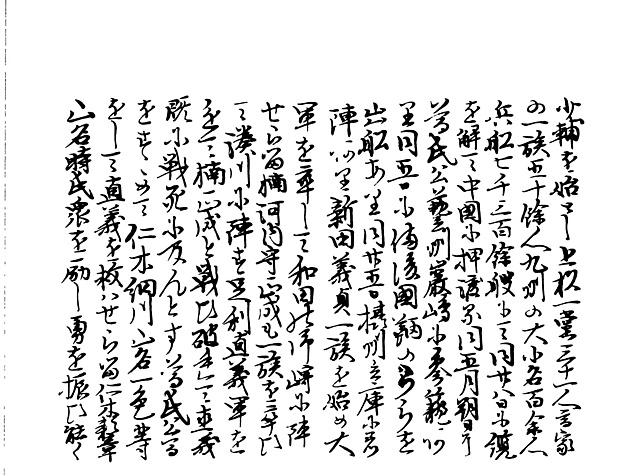 少輔を始とし上杉一黨三十一人高家
の一族五十餘人九州の大小名百余人
兵船七千三百餘艘にて同廿八日に纜
を解て中國に押渡る同五月朔日
尊氏公藝州嚴嶋に参籠
同五日に備後國鞆の
出船あり同廿五日摂州兵庫に着
陣 新田義貞一族を始め大
軍を率して和田の御崎に陣
せらる楠河内守正成も一族を率ひ
て湊川に陣す足利直義軍を
以て楠正成と戦ひ破れて直義
既に戦死に及んとす尊氏公
仁木細川山名一色等
をして直義を救はせらる仁木
山名時氏衆を励し勇を振ひ